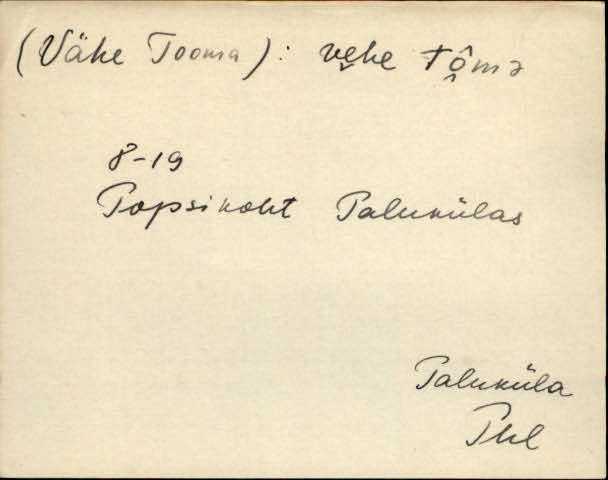 (Vähe Tooma): vę̮he tô̭mə
8-19
Popsikoht Palukülas
Paluküla
Phl